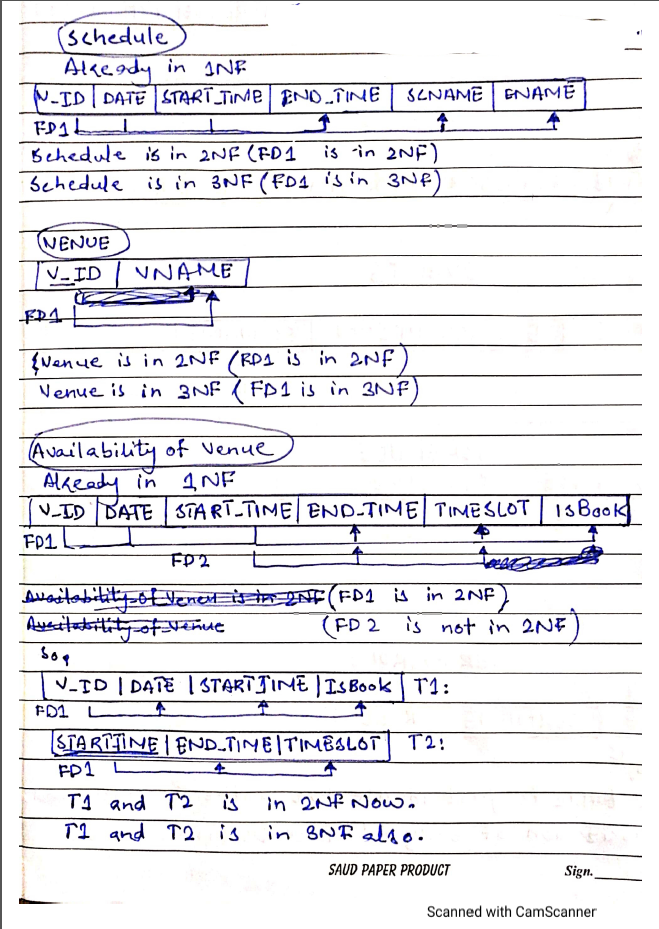 Schedule
Already in 1NF
V_ID | DATE | START_TIME | END_TIME | SCNAME | ENAME
FD1
Schedule is in 2NF (FD1 is in 2NF)
Schedule is in 3NF (FD1 is in 3NF)
VENUE
V_ID | VNAME
FD1
Venue is in 2NF (FD1 is in 2NF)
Venue is in 3NF (FD1 is in 3NF)
Availability of Venue
Already in 1NF
V_ID | DATE | START_TIME | END_TIME | TIMESLOT | ISBOOK
FD1
FD2
Availability of Venue is in 2NF (FD1 is in 2NF)
Availability of Venue (FD2 is not in 2NF)
So,
V_ID | DATE | START TIME | ISBook T1:
FD1
STARTTIME | END_TIME | TIMESLOT T2:
FD1
T1 and T2 is in 2NF NOW.
T1 and T2 is in 3NF also.
SAUD PAPER PRODUCT Sign.
Scanned with CamScanner